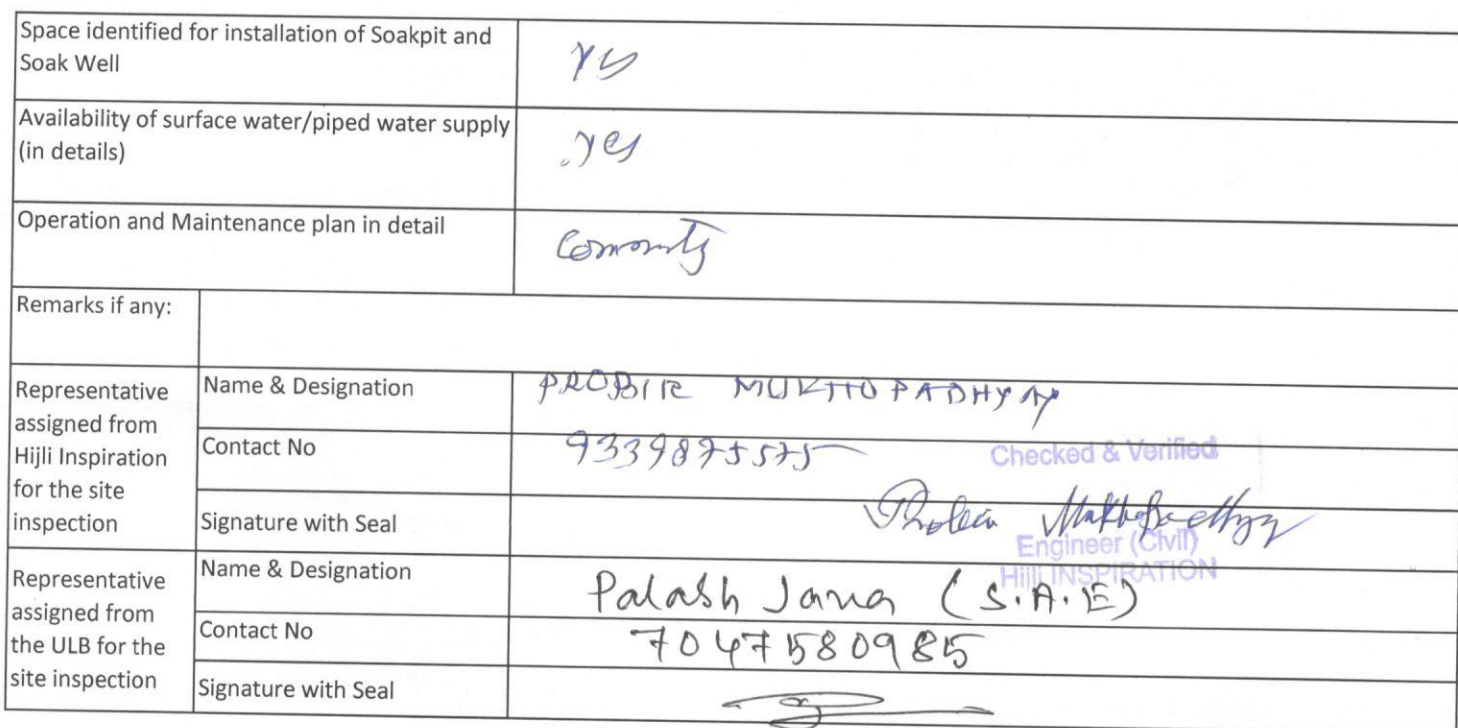 Space identified for installation of Soakpit and
Soak Well
yes
Availability of surface water/piped water supply
(in details)
yes
Operation and Maintenance plan in detail
Comomty
Remarks if any:
Representative
assigned from
Hijli Inspiration
for the site
inspection
Name & Designation
PROBIR MUKHOPADHYAY
Contact No
9339875575
Checked & Verified
Signature with Seal
Probir Mukhopadhyay
Engineer (Civil)
Hijli INSPIRATION
Representative
assigned from
the ULB for the
site inspection
Name & Designation
Palash Jana (S.A.E)
Contact No
7047580985
Signature with Seal